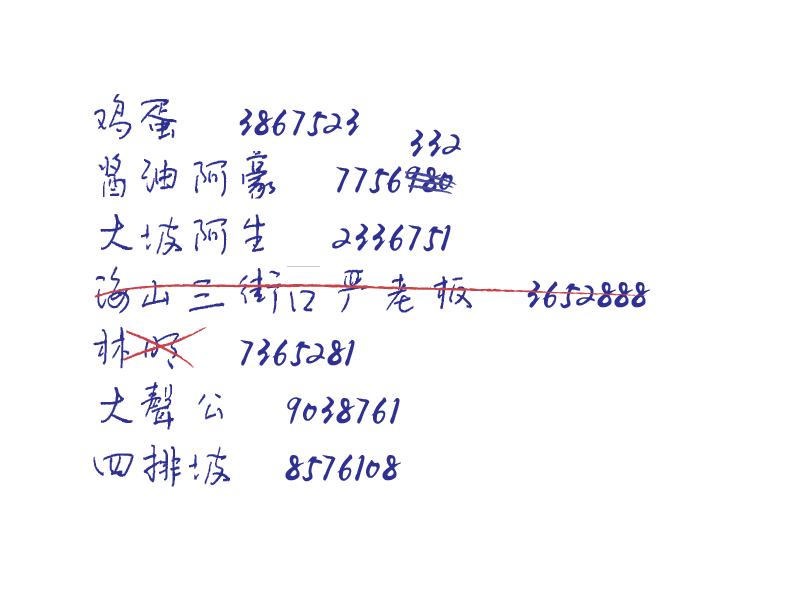 鸡蛋 3867523
酱油阿豪 7756332
大坡阿生 2336751
海山三街口严老板 3652888
林 7365281
大聲公 9038761
四排坡 8576108